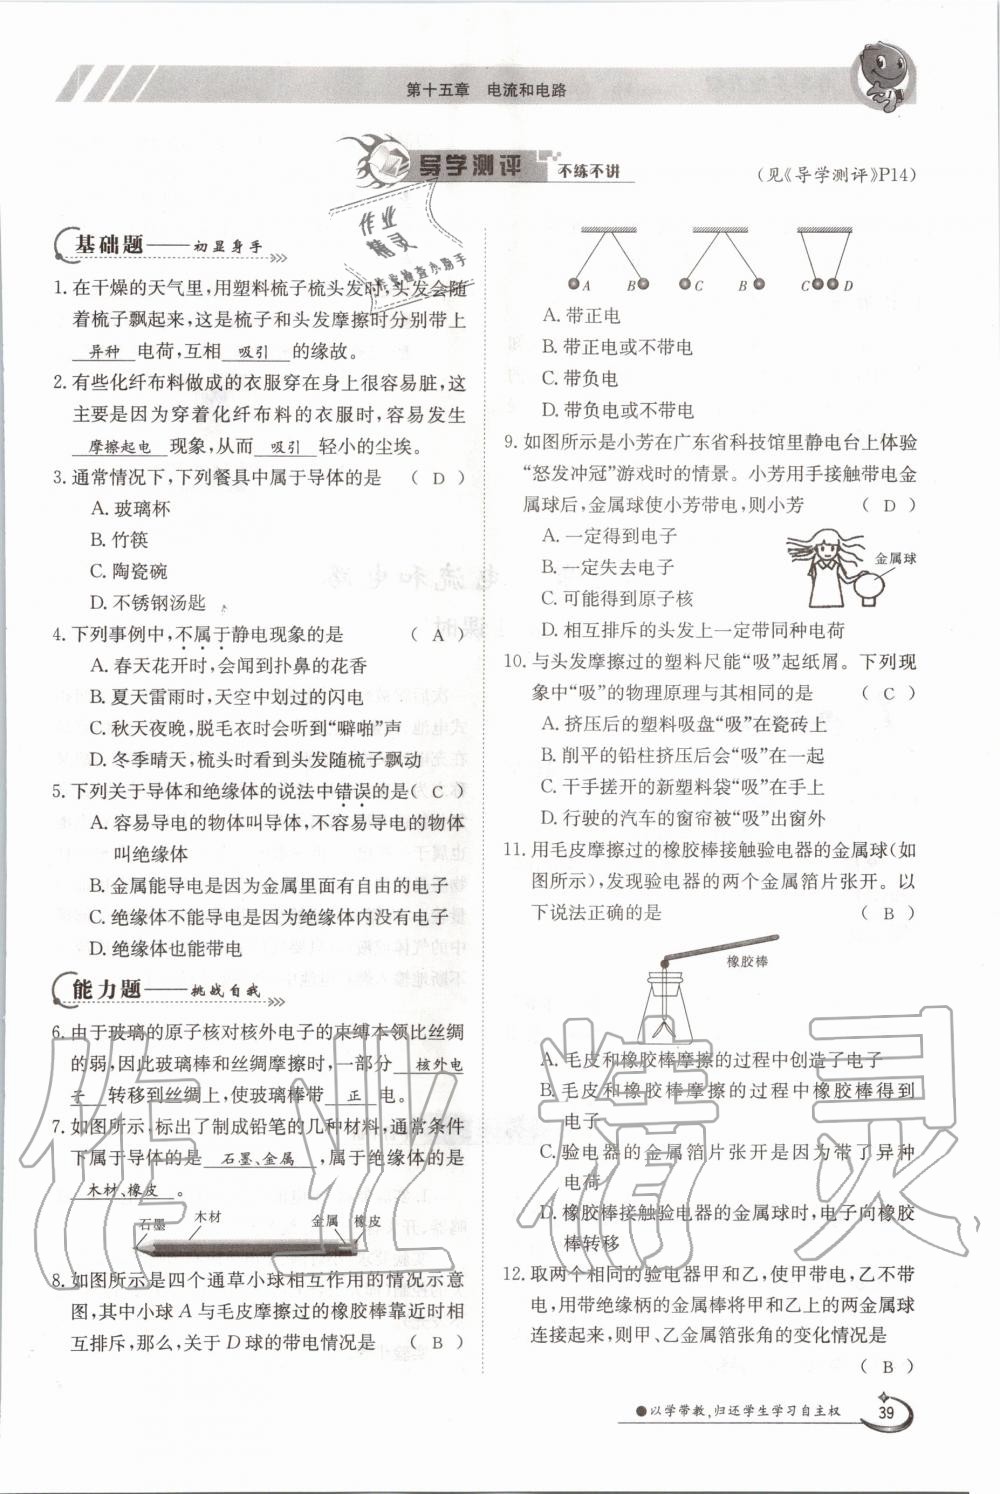 第十五章 电流和电路
导学测评 不练不讲
(见《导学测评》P14)
作业
精灵
基础题——初显身手
1. 在干燥的天气里,用塑料梳子梳头发时,头发会随
着梳子飘起来,这是梳子和头发摩擦时分别带上
异种 电荷,互相 吸引 的缘故。
2. 有些化纤布料做成的衣服穿在身上很容易脏,这
主要是因为穿着化纤布料的衣服时,容易发生
摩擦起电 现象,从而 吸引 轻小的尘埃。
3. 通常情况下,下列餐具中属于导体的是 ( D )
A. 玻璃杯
B. 竹筷
C. 陶瓷碗
D. 不锈钢汤匙
4. 下列事例中,不属于静电现象的是 ( A )
A. 春天花开时,会闻到扑鼻的花香
B. 夏天雷雨时,天空中划过的闪电
C. 秋天夜晚,脱毛衣时会听到“噼啪”声
D. 冬季晴天,梳头时看到头发随梳子飘动
5. 下列关于导体和绝缘体的说法中错误的是( C )
A. 容易导电的物体叫导体,不容易导电的物体
叫绝缘体
B. 金属能导电是因为金属里面有自由的电子
C. 绝缘体不能导电是因为绝缘体内没有电子
D. 绝缘体也能带电
能力题——挑战自我
6. 由于玻璃的原子核对核外电子的束缚本领比丝绸
的弱,因此玻璃棒和丝绸摩擦时,一部分 核外电
子 转移到丝绸上,使玻璃棒带 正 电。
7. 如图所示,标出了制成铅笔的几种材料,通常条件
下属于导体的是 石墨、金属 ,属于绝缘体的是
木材、橡皮 。
石墨 木材 金属 橡皮
8. 如图所示是四个通草小球相互作用的情况示意
图,其中小球 A 与毛皮摩擦过的橡胶棒靠近时相
互排斥,那么,关于 D 球的带电情况是 ( B )
A B C B C D
A. 带正电
B. 带正电或不带电
C. 带负电
D. 带负电或不带电
9. 如图所示是小芳在广东省科技馆里静电台上体验
“怒发冲冠”游戏时的情景。小芳用手接触带电金
属球后,金属球使小芳带电,则小芳 ( D )
A. 一定得到电子
B. 一定失去电子
C. 可能得到原子核
D. 相互排斥的头发上一定带同种电荷
金属球
10. 与头发摩擦过的塑料尺能“吸”起纸屑。下列现
象中“吸”的物理原理与其相同的是 ( C )
A. 挤压后的塑料吸盘“吸”在瓷砖上
B. 削平的铅柱挤压后会“吸”在一起
C. 干手搓开的新塑料袋“吸”在手上
D. 行驶的汽车的窗帘被“吸”出窗外
11. 用毛皮摩擦过的橡胶棒接触验电器的金属球(如
图所示),发现验电器的两个金属箔片张开。以
下说法正确的是 ( B )
橡胶棒
A. 毛皮和橡胶棒摩擦的过程中创造了电子
B. 毛皮和橡胶棒摩擦的过程中橡胶棒得到
电子
C. 验电器的金属箔片张开是因为带了异种
电荷
D. 橡胶棒接触验电器的金属球时,电子向橡胶
棒转移
12. 取两个相同的验电器甲和乙,使甲带电,乙不带
电,用带绝缘柄的金属棒将甲和乙上的两金属球
连接起来,则甲、乙金属箔张角的变化情况是
( B )
●以学带教,归还学生学习自主权 39
作业精灵